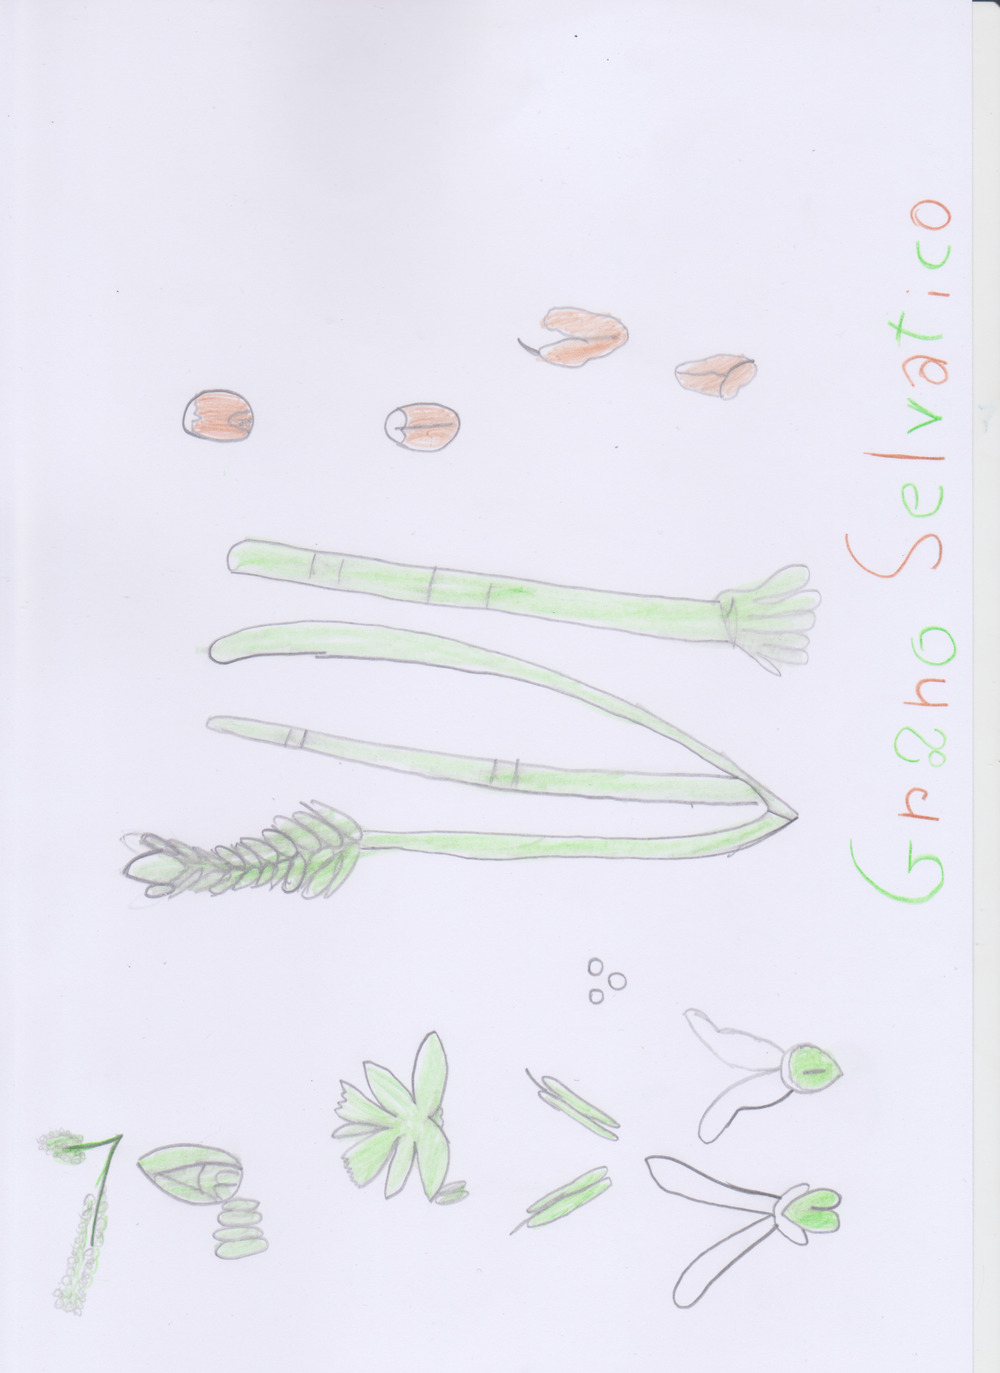 Grano Selvatico